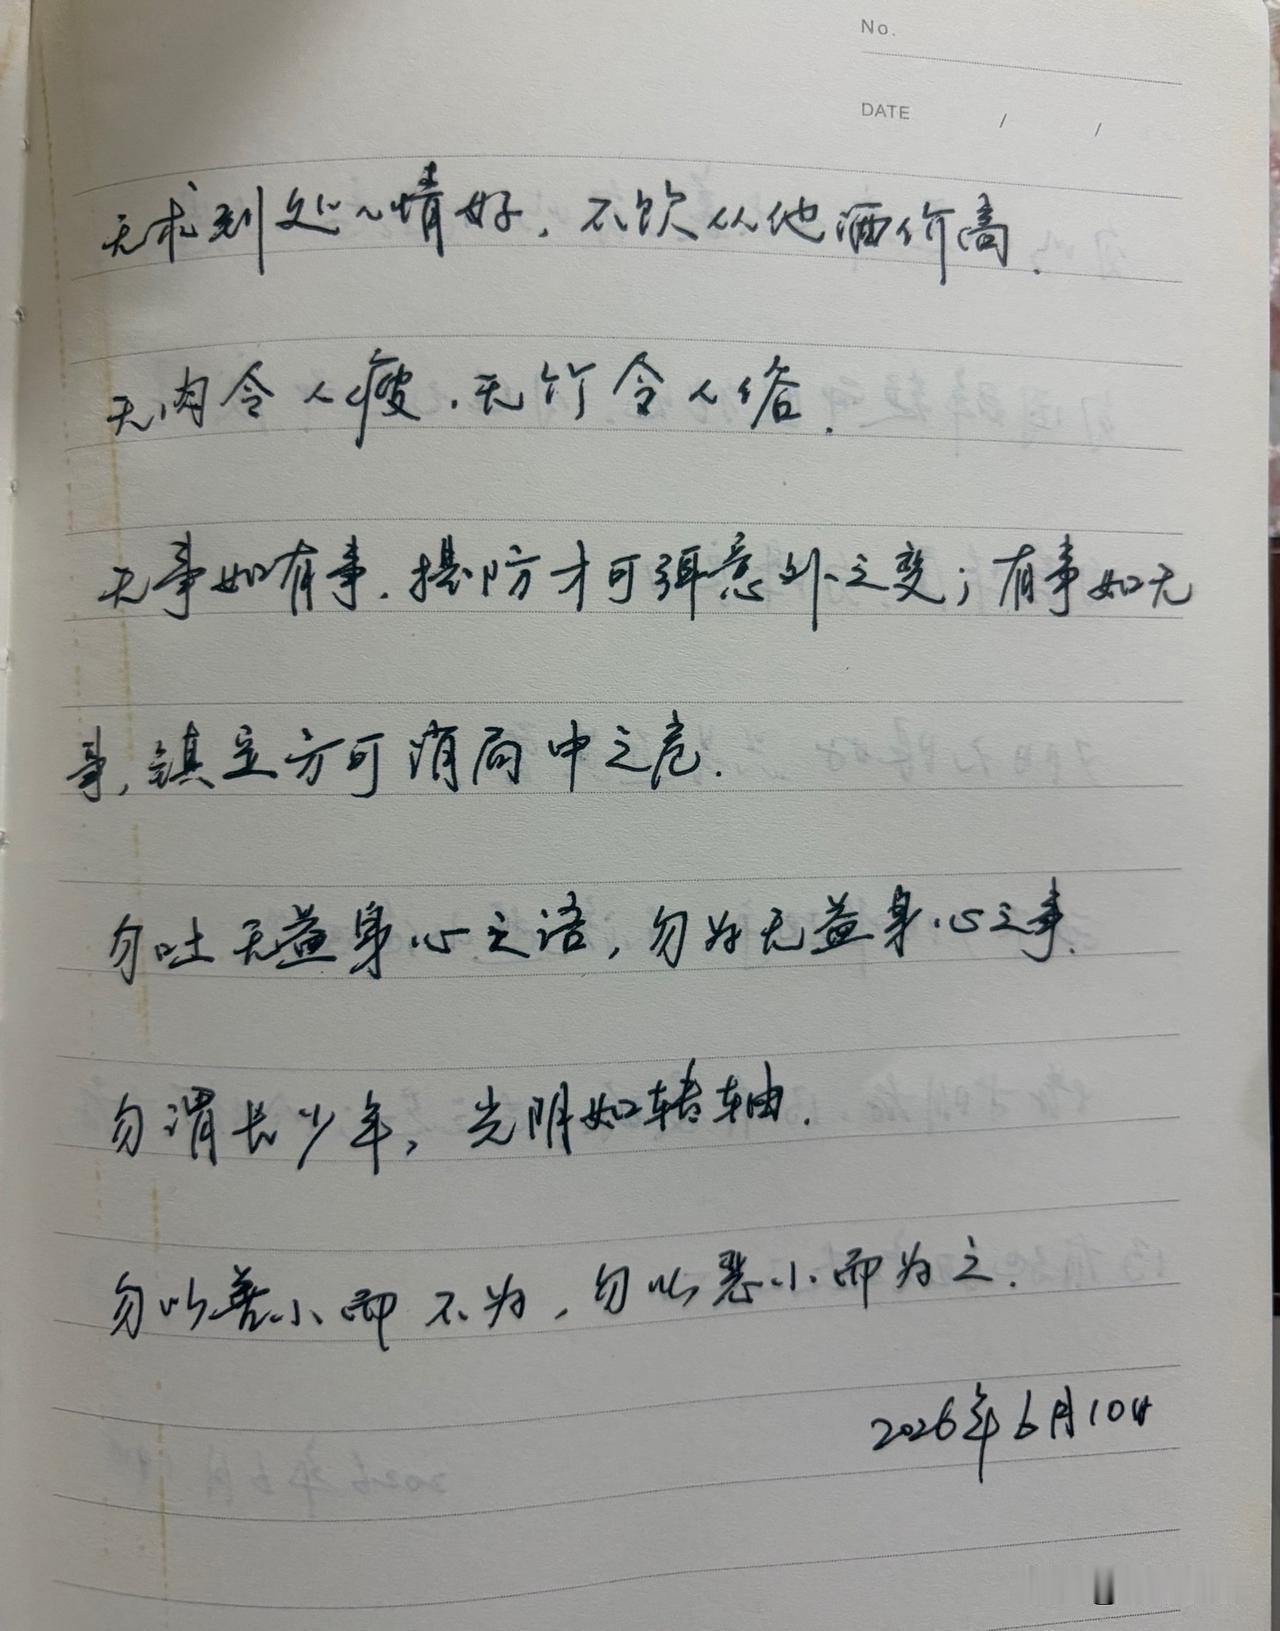 No.
DATE / /
无求到处心情好，不饮从他酒价高．
无肉令人瘦．无竹令人俗．
无事如有事．提防才可弭意外之变；有事如无
事，镇定方可消局中之危．
勿吐无益身心之语，勿为无益身心之事．
勿谓长少年，光阴如转轴．
勿以善小而不为，勿以恶小而为之．
2026年6月10日